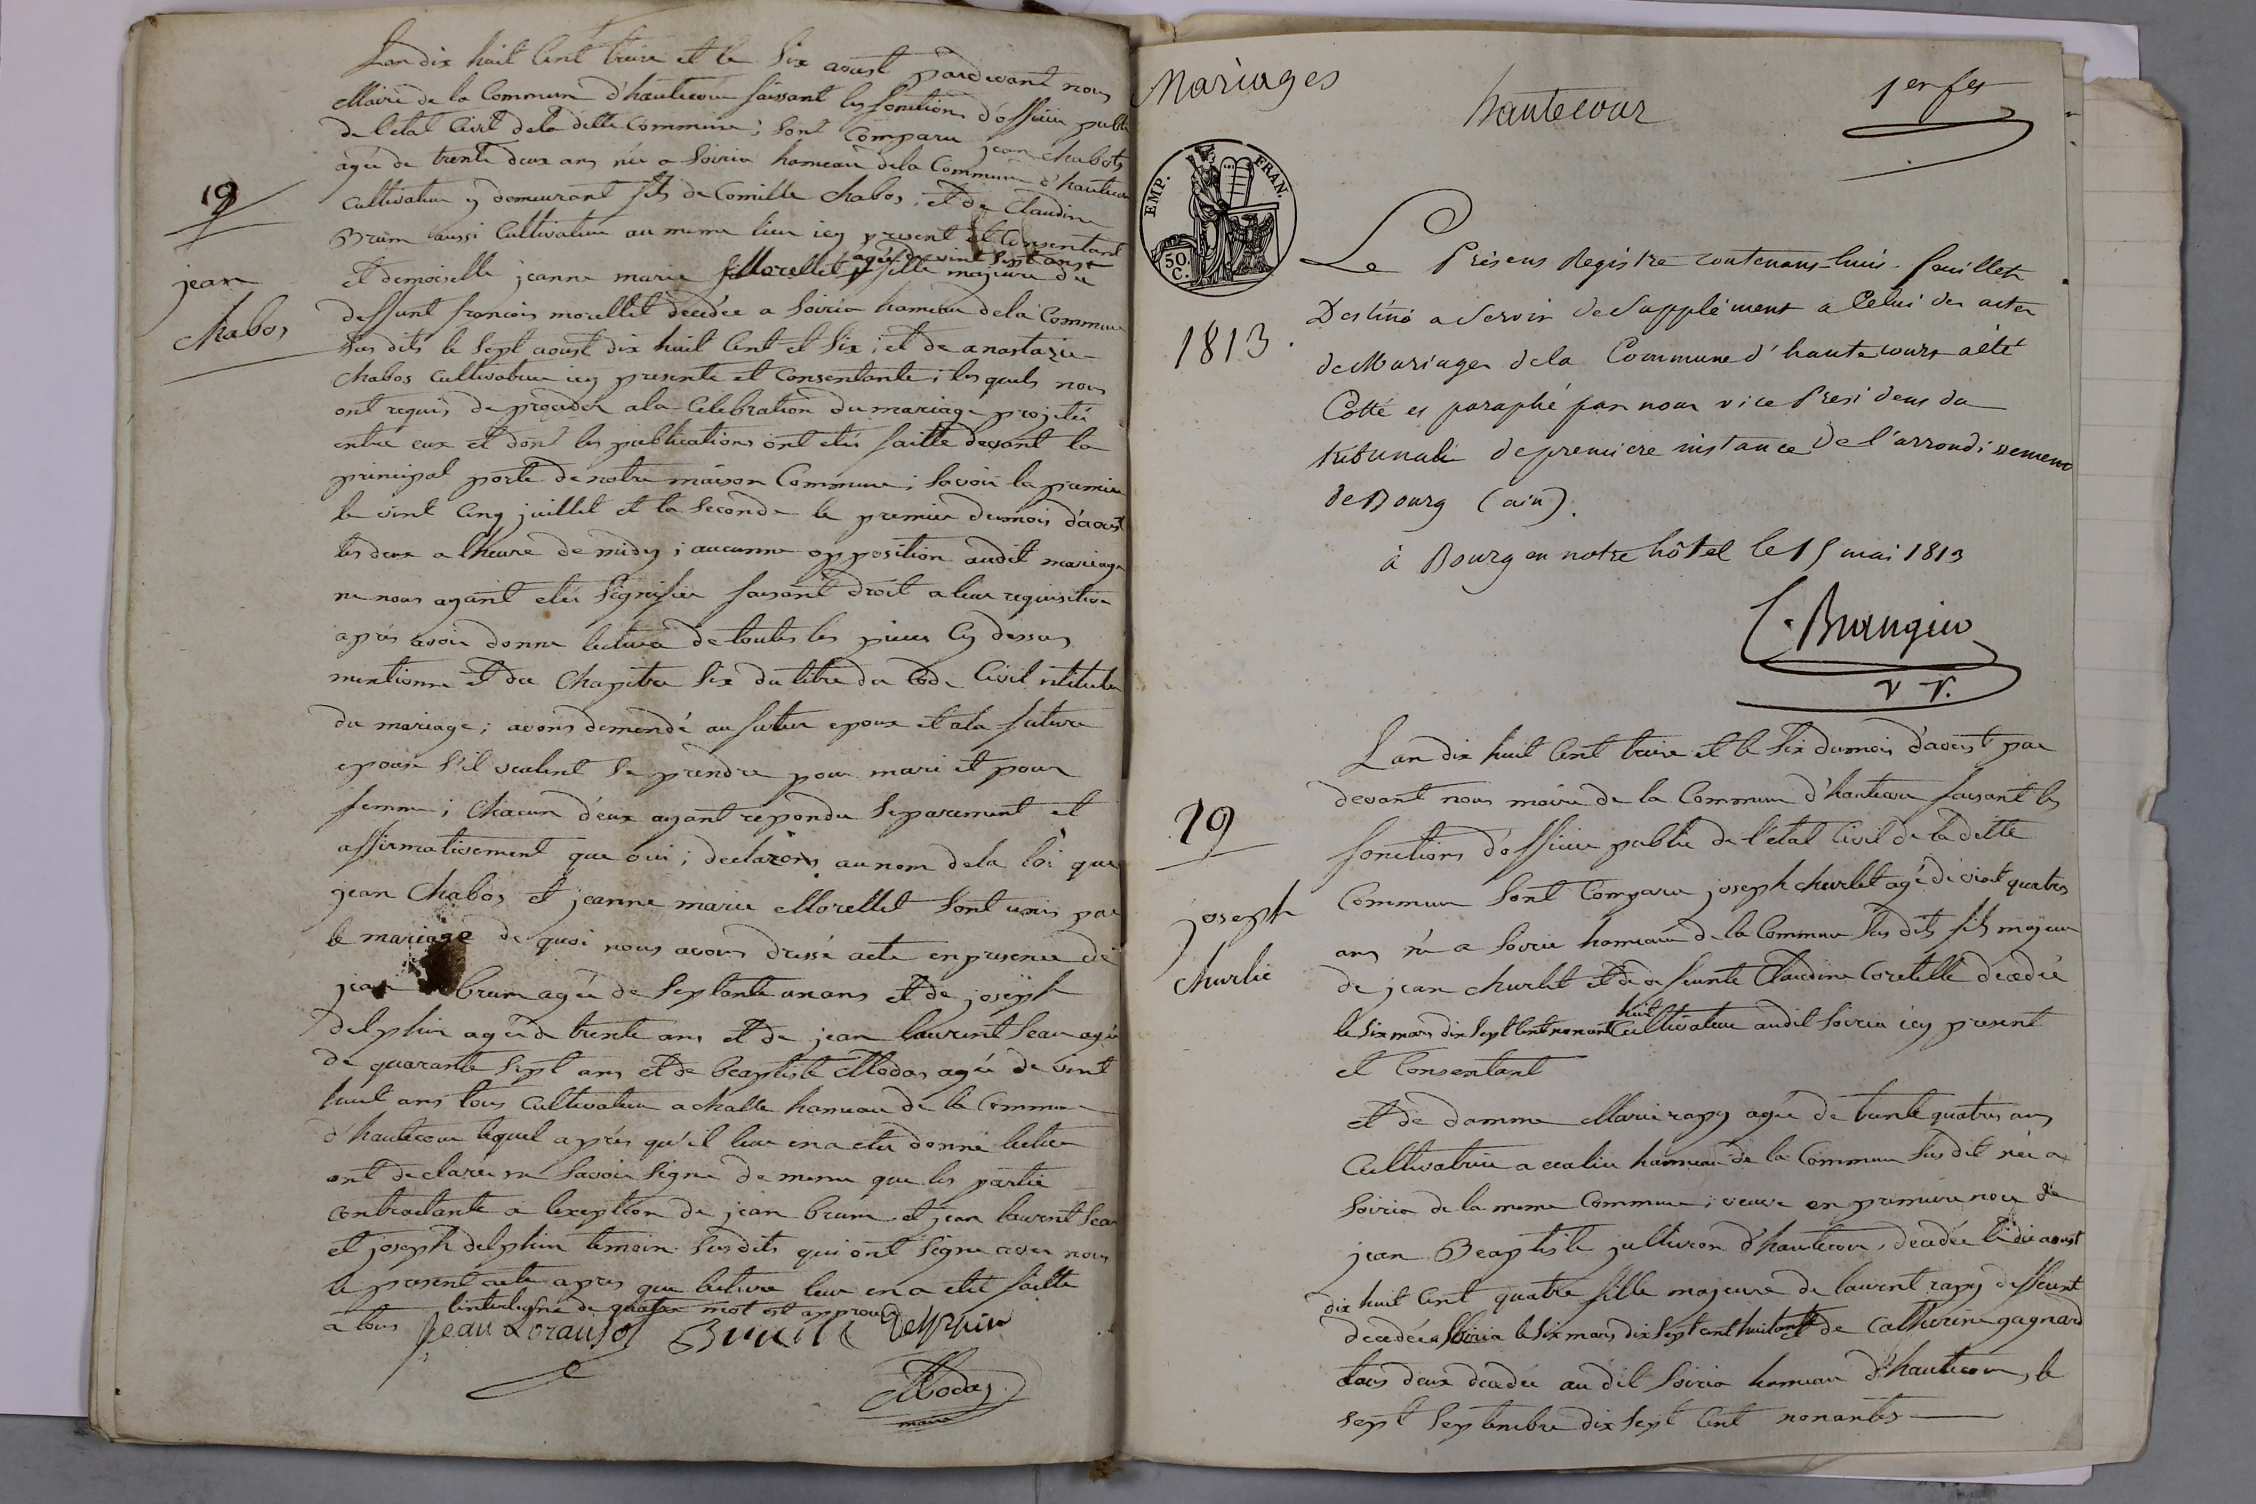 Lan dix huit Cent treize et le Six aoust pardevant nous
Maire de la Commune d'hautecour faissant les fonctions d'officier public
de l'etat Civil de la ditte Commune; Sont Comparu jean chabots
agée de trente deux ans née a Soiria hameau dela Commune d'hautecour
Cultivateur y demeurant fils de Comille chabos, et de Claudine
Brum aussi Cultivateur au meme lieu icy present et Consentant
agée de vint Sept ans
et demoiselle jeanne marie Morellet fille majeure de
deffunt francois morellet decedée a Soiria hameau dela Commune
Sus dits le Sept aoust dix huit Cent et Six; et de anastazie
Chabos Cultivatrice icy presente et Consentante; les quels nous
ont requis de proceder a la Celebration du mariage projetée
entre eux et dont les publications ont etée faitte devant la
principal porte de notre maison Commune; Savoir la premiere
le vint Cinq juillet et la Seconde le premier dumois d'aoust
les deux a lheure de midy; aucunne opposition audit mariage
ne nous ayant etée Signifiée faisant droit a leur requisition
19
jean
chabos
après avoir donne lecture de toutes les pieces Cy dessus
mentionne et du Chapitre Six du titre du Code Civil intitulée
du mariage; avons demendé au futur epoux et a la future
epouse S'il veulent Se prendre pour mari et pour
femme; Chacun d'eux ayant repondu Separement et
affirmativement que oui; declarons au nom dela loi que
jean Chabos et jeanne marie Morellet Sont unis par
le mariage de quoi nous avons dressé acte en presence de
jean brum agée de Septante un ans et de joseph
delphin agée de trente ans et de jean laurent Seau agée
de quarante Sept ans et de Beaptiste Modas agée de vint
huit ans tous Cultivateur a Challe hameau de la Commune
d'hautecour lequel après qu'il leur en a etée donné lecture
ont declarée ne Savoir Signe de meme que les partie
Contractante a lexeption de jean brum et jean laurent Seau
et joseph delphin temoin Susdits qui ont Signe avec nous
le present acte apres que lecture leur en a eté faitte
a tous linterligne de quatre mot est approuvé
Jean Loran
delphin
Modas
maire
Mariages
hautecour
1er fet
EMP. FRAN.
50. C.
1813.
Le Présent Registre contenant huit feuillets
Destiné a Servir de Supplément a Celui des actes
de Mariages dela Commune d'hautecour a été
Cotté et paraphé par nous vice President du
tribunal de premiere instance De l'arrondissement
de Bourg (ain).
à Bourg en notre hôtel le 15 mai 1813
C. Brangier
v. p.
19
joseph
churlie
Lan dix huit Cent treize et le Six dumois d'aoust par
devant nous maire de la Commune d'hautecour faisant les
fonctions d'officier public de l'etat Civil de la ditte
Commune Sont Comparu joseph churlet agé de vint quatres
ans née a Soiria hameau de la Commune Sus dits fils majeur
de jean churlet et de defeunte Claudine Coretelle decedée
le Six mars dix Sept Cent nonante huit Cultivateur audit Soiria icy present
et Consentant
et de damme Marie rapy agée de trente quatres ans
Cultivatrice a hameau de la Commune Susdit née a
Soiria de la meme Commune; veuve en premiere noce de
jean Beaptiste jullieron d'hautecour, decedée le dix aoust
dix huit Cent quatre fille majeure de laurent rapy deffeunt
decedée a Soiria le Six mars dix Sept cent huitante et de Catherine gagnard
tous deux decedée au dit Soiria hameau d'hautecour, le
Sept Septembre dix Sept Cent nonantes